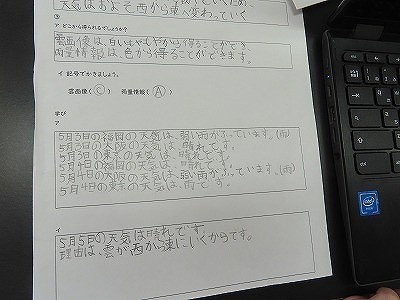 天気はおよそ西から東へ変わっていく
③
ア どこから得られるでしょうか?
雲画像は、白いもやもやから得ることができ、
雨量情報は、色から得ることができます。
イ 記号でかきましょう。
雲画像( C ) 雨量情報( A )
学び
ア
5月3日の福岡の天気は、弱い雨がふっています。(雨)
5月3日の大阪の天気は、晴れです。
5月3日の東京の天気は、晴れです。
5月4日の福岡の天気は、晴れです。
5月4日の大阪の天気は、弱い雨がふっています。(雨)
5月4日の東京の天気は、雨です。
イ
5月5日の天気は晴れです。
理由は、雲が西から東にいくからです。
intel